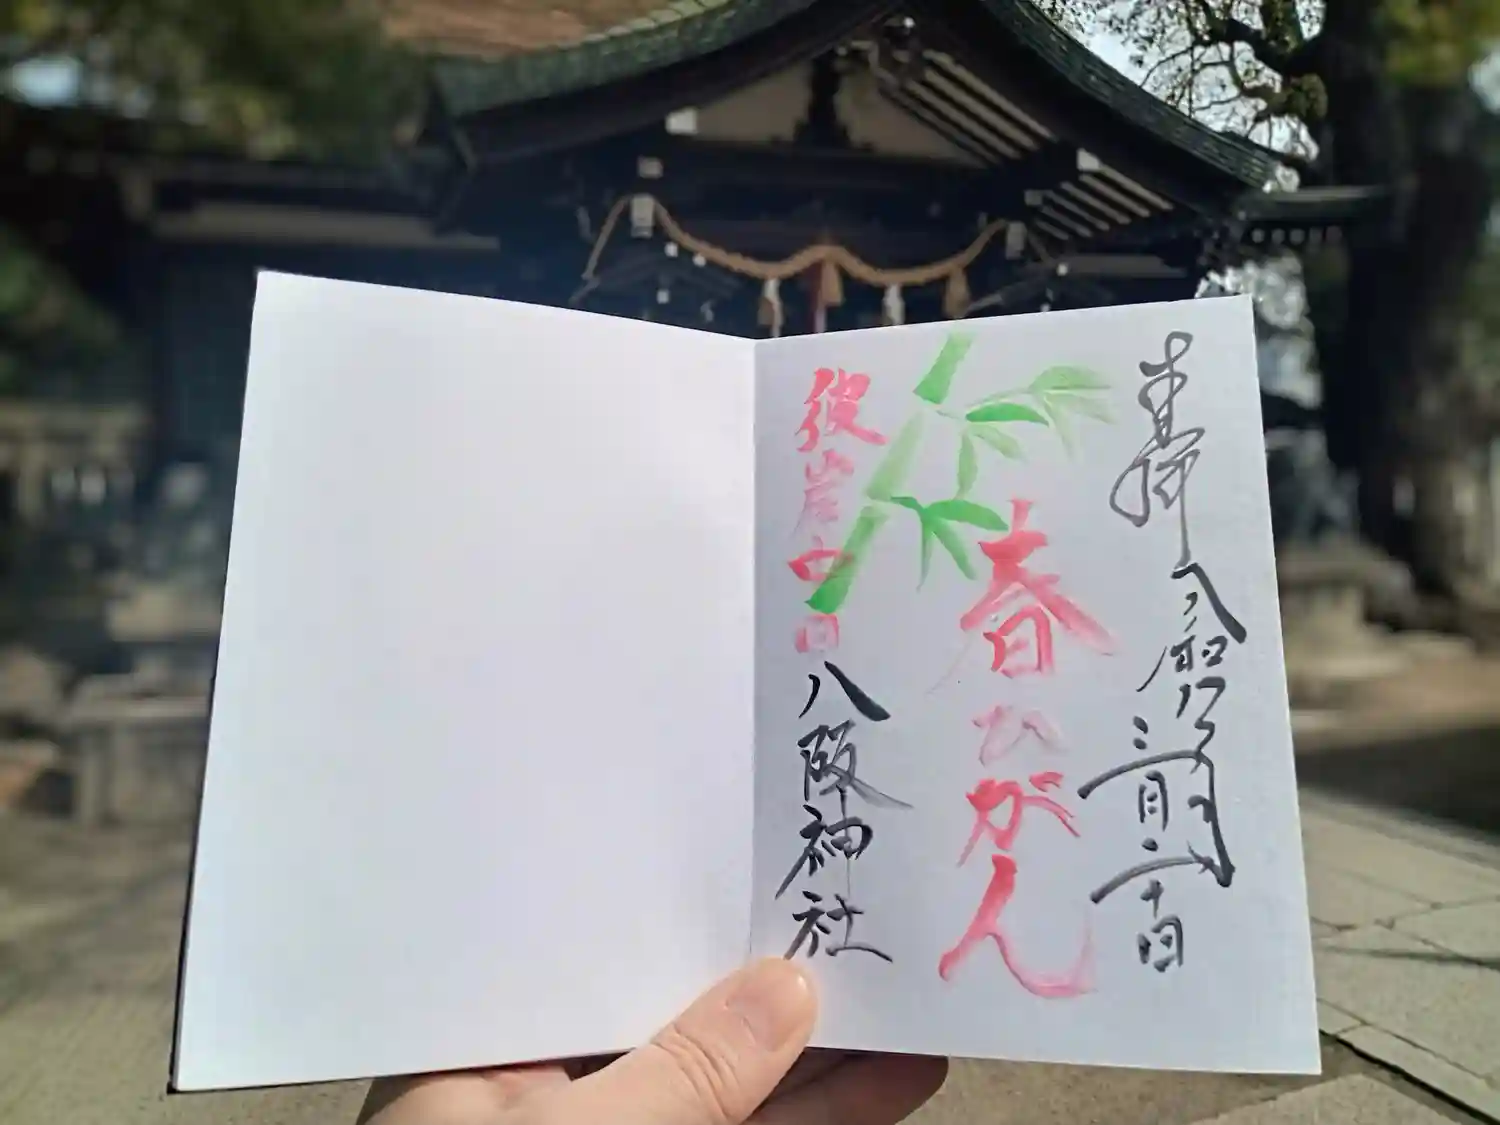 奉拝 令和 年三月二十日
春ひがん
彼岸中日 八阪神社